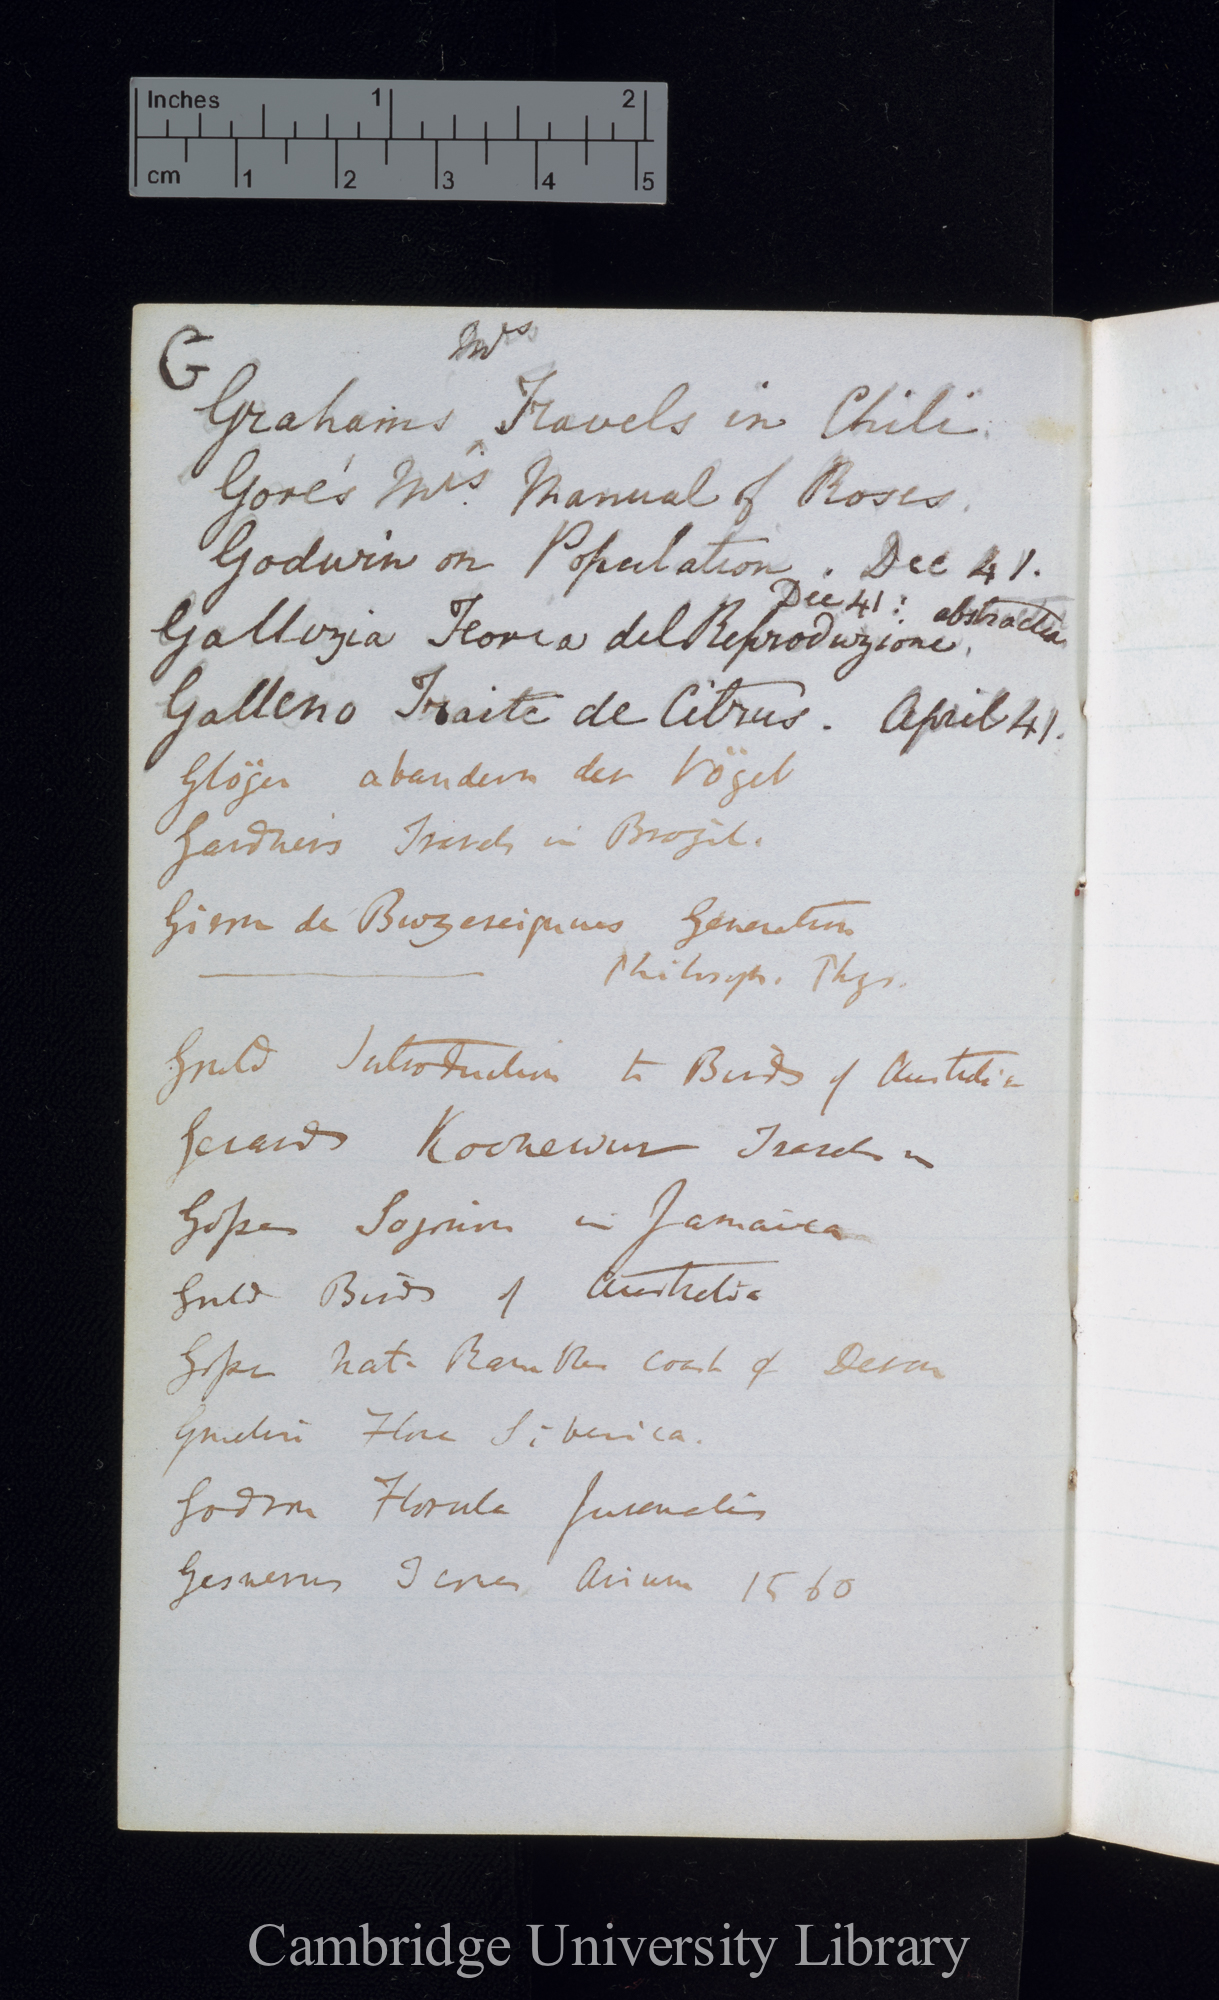 Inches 1 2
cm 1 2 3 4 5
G
Mrs
Grahams ^ Travels in Chili.
Gore's Mrs. Manual of Roses.
Godwin on Population. Dec 41.
Dec 41: abstracted
Gallizia Teoria del Reproduzione.
Galleno Traite de Citrus. April 41.
Glöger abandern der Vögel
Gardners Travels in Brazil.
Giron de Buzareingues Generation
Philosoph. Phys.
Gould Introduction to Birds of Australia
Gerards Koonewur Travels in
Gosse Sojourn in Jamaica
Gould Birds of Australia
Gosse Nat. Rambles Coast of Devon
Gmelin Flora Siberica.
Godron Florula Juvenalis
Gesnerus Icones Avium 1560
Cambridge University Library